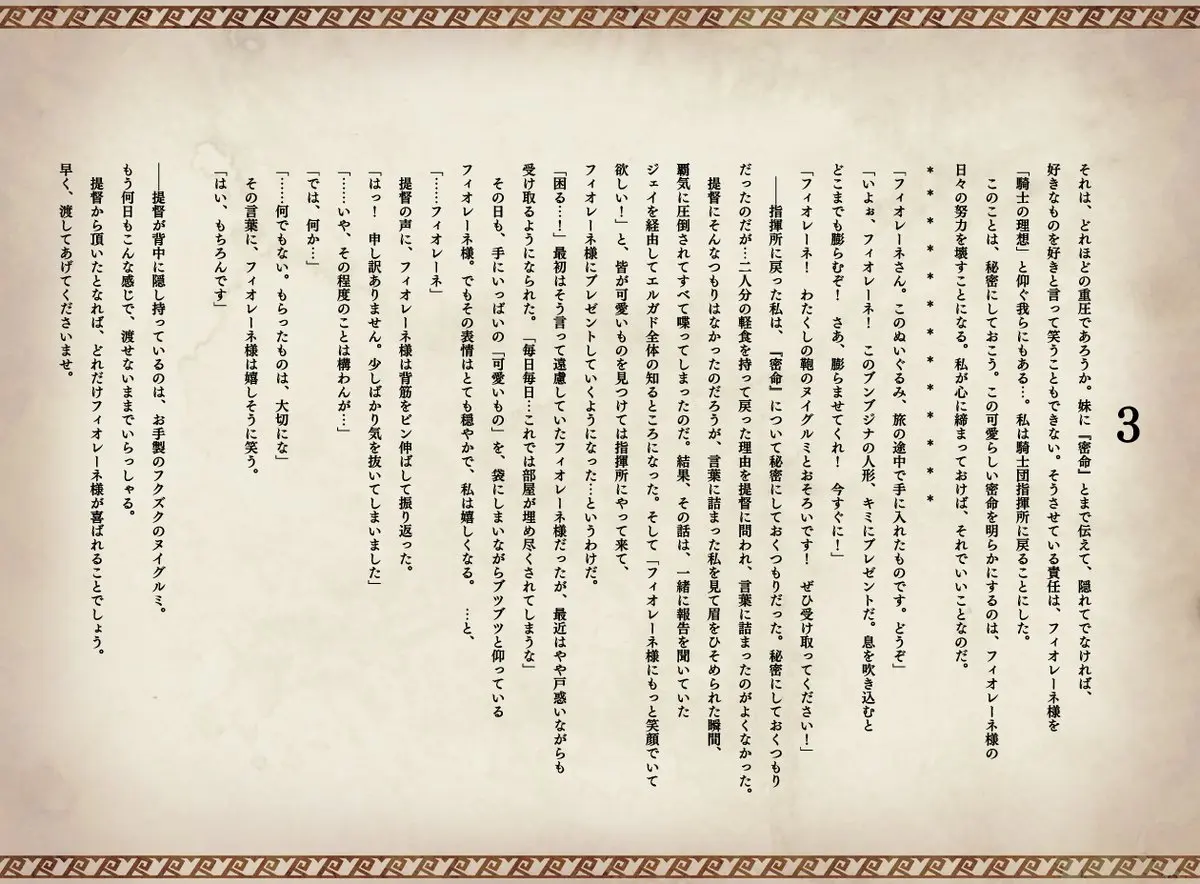 3
それは、どれほどの重圧であろうか。妹に『密命』とまで伝えて、隠れてでなければ、
好きなものを好きと言って笑うこともできない。そうさせている責任は、フィオレーネ様を
「騎士の理想」と仰ぐ我らにもある…。私は騎士団指揮所に戻ることにした。
このことは、秘密にしておこう。この可愛らしい密命を明らかにするのは、フィオレーネ様の
日々の努力を壊すことになる。私が心に締まっておけば、それでいいことなのだ。
＊＊＊＊＊＊＊＊＊＊＊＊＊
「フィオレーネさん。このぬいぐるみ、旅の途中で手に入れたものです。どうぞ」
「いよぉ、フィオレーネ！　このブンブジナの人形、キミにプレゼントだ。息を吹き込むと
どこまでも膨らむぞ！　さあ、膨らませてくれ！　今すぐに！」
「フィオレーネ！　わたくしの鞄のヌイグルミとおそろいです！　ぜひ受け取ってください！」
――指揮所に戻った私は、『密命』について秘密にしておくつもりだった。秘密にしておくつもり
だったのだが…二人分の軽食を持って戻った理由を提督に問われ、言葉に詰まったのがよくなかった。
提督にそんなつもりはなかったのだろうが、言葉に詰まった私を見て眉をひそめられた瞬間、
覇気に圧倒されてすべて喋ってしまったのだ。結果、その話は、一緒に報告を聞いていた
ジェイを経由してエルガド全体の知るところになった。そして「フィオレーネ様にもっと笑顔でいて
欲しい！」と、皆が可愛いものを見つけては指揮所にやって来て、
フィオレーネ様にプレゼントしていくようになった…というわけだ。
「困る…！」最初はそう言って遠慮していたフィオレーネ様だったが、最近はやや戸惑いながらも
受け取るようになられた。「毎日毎日…これでは部屋が埋め尽くされてしまうな」
その日も、手にいっぱいの「可愛いもの」を、袋にしまいながらブツブツと仰っている
フィオレーネ様。でもその表情はとても穏やかで、私は嬉しくなる。　…と、
「……フィオレーネ」
提督の声に、フィオレーネ様は背筋をピン伸ばして振り返った。
「はっ！　申し訳ありません。少しばかり気を抜いてしまいました」
「……いや、その程度のことは構わんが…」
「では、何か…」
「……何でもない。もらったものは、大切にな」
その言葉に、フィオレーネ様は嬉しそうに笑う。
「はい、もちろんです」
――提督が背中に隠し持っているのは、お手製のフクズクのヌイグルミ。
もう何日もこんな感じで、渡せないままでいらっしゃる。
提督から頂いたとなれば、どれだけフィオレーネ様が喜ばれることでしょう。
早く、渡してあげてくださいませ。